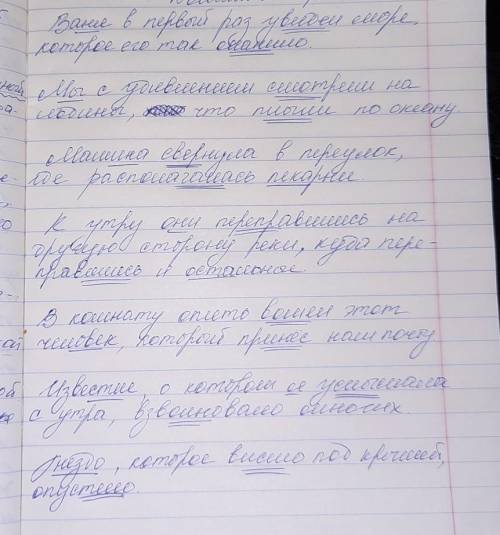 Ване в первый раз увидел море,
которое его так манило.
Мы с удивлением смотрели на
льдины, что плыли по океану
Машина свернула в переулок,
где располагалась пекарня
К утру они переправились на
другую сторону реки, куда пере-
правились и остальное.
В комнату опять вошел этот
человек, который принёс нам почту
Известие, о котором я услышала
с утра, взволновало многих.
Гнездо, которое висело под крышей,
опустело.